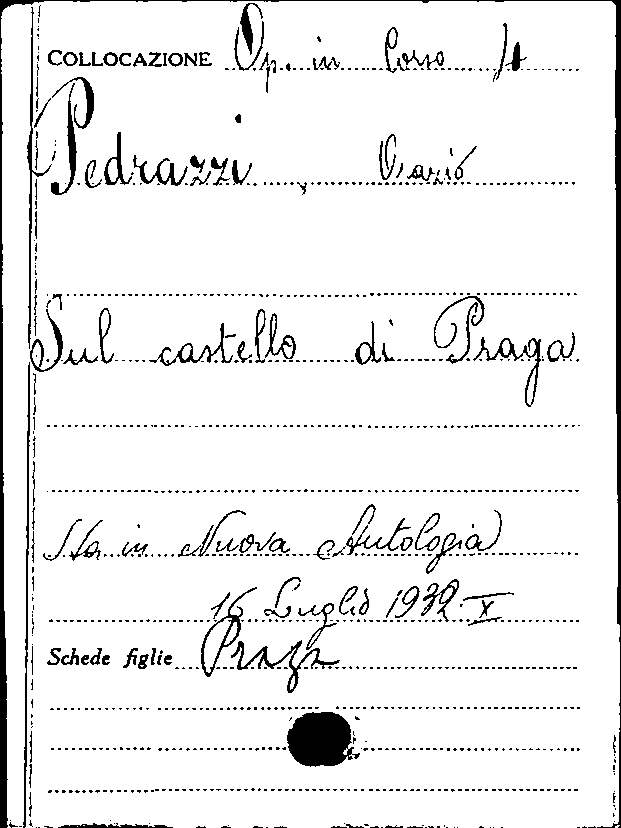 COLLOCAZIONE Op. in Corso
Pedrazzi, Orazio
Sul castello di Praga
Sta in Nuova Antologia
16 Luglio 1932-X
Schede figlie Praga